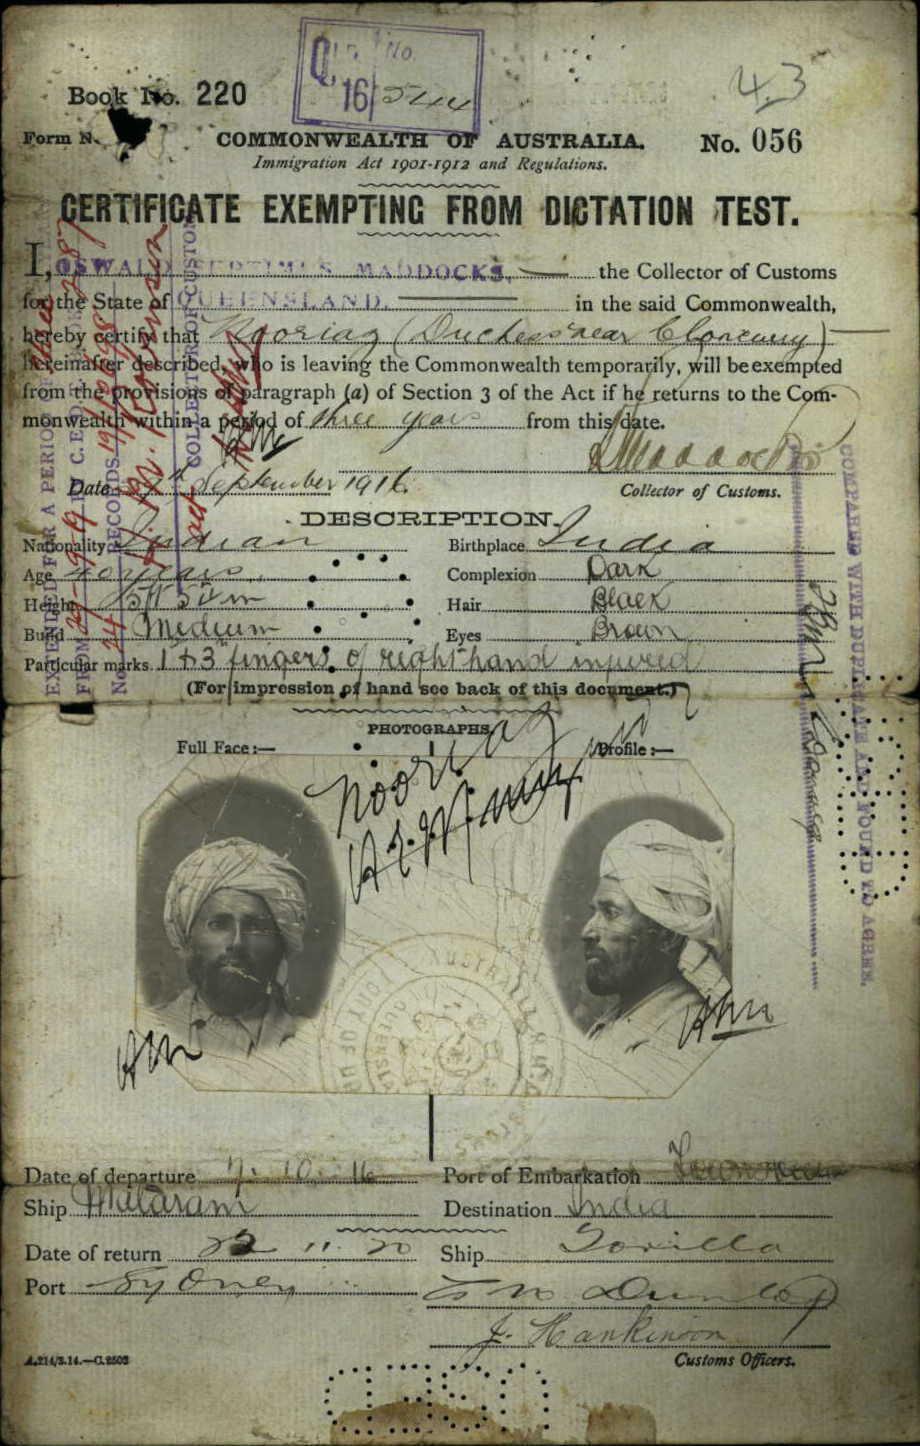 Qld No.
16/544
43
Book No. 220
Form N
COMMONWEALTH OF AUSTRALIA.
No. 056
Immigration Act 1901-1912 and Regulations.
CERTIFICATE EXEMPTING FROM DICTATION TEST.
I, OSWALD SEPTIMUS MADDOCKS, the Collector of Customs
for the State of QUEENSLAND. in the said Commonwealth,
hereby certify that Nooriag (Duchess near Cloncurry)
hereinafter described, who is leaving the Commonwealth temporarily, will be exempted
from the provisions of paragraph (a) of Section 3 of the Act if he returns to the Com-
monwealth within a period of three years from this date.
Date September 1916.
Collector of Customs.
DESCRIPTION.
Nationality Indian
Birthplace India
Age 40 years
Complexion Dark
Height
Hair Black
Build Medium
Eyes Brown
Particular marks. 1 & 3 fingers of right hand injured
(For impression of hand see back of this document.)
PHOTOGRAPHS.
Full Face :—
Profile :—
Nooriag
Date of departure 7. 10. 16
Port of Embarkation
Ship Mildaram
Destination India
Date of return 22 11 20
Ship Gorilla
Port Sydney
J. Hankinson
A.214/3.14.—C.2503
Customs Officers.
EXTENDED FOR A PERIOD OF
FROM
COLLECTOR OF CUSTOMS
COMPARED WITH DUPLICATE AND FOUND TO AGREE.